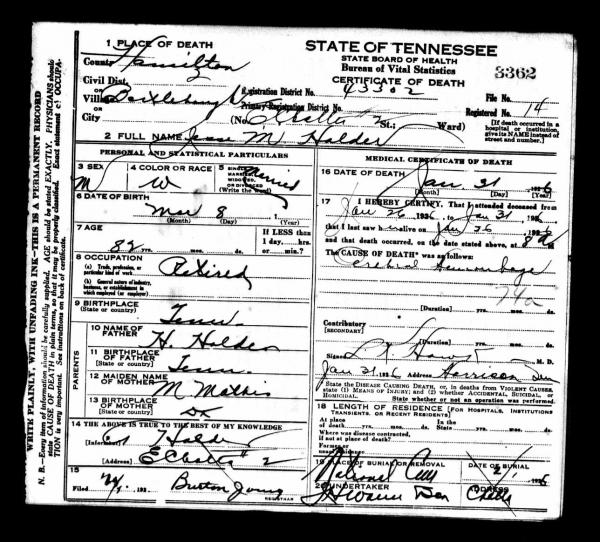 1 PLACE OF DEATH
STATE OF TENNESSEE
STATE BOARD OF HEALTH
Bureau of Vital Statistics
CERTIFICATE OF DEATH
3362
County Hamilton
Civil Dist.
OR
Village
OR
City
Registration District No. 43302
Primary Registration District No.
(No. St.; Ward)
File No.
Registered No. 14
[If death occurred in a hospital or institution, give its NAME instead of street and number.]
2 FULL NAME M. Holder
PERSONAL AND STATISTICAL PARTICULARS
3 SEX M
4 COLOR OR RACE W
5 SINGLE, MARRIED, WIDOWED, OR DIVORCED (Write the word)
6 DATE OF BIRTH
Mar 8, 1
(Month) (Day) (Year)
7 AGE
82 yrs. mos. ds.
If LESS than 1 day, hrs. or min.?
8 OCCUPATION
(a) Trade, profession, or particular kind of work
Retired
(b) General nature of industry, business, or establishment in which employed (or employer)
9 BIRTHPLACE
(State or country)
Tenn.
PARENTS
10 NAME OF FATHER H. Holder
11 BIRTHPLACE OF FATHER
(State or country)
Tenn.
12 MAIDEN NAME OF MOTHER M Mathis
13 BIRTHPLACE OF MOTHER
(State or country)
DK
14 THE ABOVE IS TRUE TO THE BEST OF MY KNOWLEDGE
(Informant) Holder
(Address) E Chatta # 2
15
Filed 192
REGISTRAR
MEDICAL CERTIFICATE OF DEATH
16 DATE OF DEATH
Jan 31 1926
(Month) (Day) (Year)
17 I HEREBY CERTIFY, That I attended deceased from
Jan 26 1926 to Jan 31 1926
that I last saw h alive on Jan 26 192
and that death occurred, on the date stated above, at 8 a m.
The CAUSE OF DEATH* was as follows:
Cerebral Hemorrhage
74a
(Duration) yrs. mos. ds.
Contributory
(Secondary)
(Duration) yrs. mos. ds.
Signed M. D.
Jan 31 1926 Address Harrison Tenn
*State the DISEASE CAUSING DEATH, or, in deaths from VIOLENT CAUSES, state (1) MEANS OF INJURY; and (2) whether ACCIDENTAL, SUICIDAL, or HOMICIDAL. State whether or not an operation was performed.
18 LENGTH OF RESIDENCE (FOR HOSPITALS, INSTITUTIONS, TRANSIENTS, OR RECENT RESIDENTS)
At place of death yrs. mos. ds. In the State yrs. mos. ds.
Where was disease contracted, if not at place of death?
19 PLACE OF BURIAL OR REMOVAL
National Cem
DATE OF BURIAL
2/1 1926
20 UNDERTAKER
ADDRESS
Chatta
WRITE PLAINLY, WITH UNFADING INK—THIS IS A PERMANENT RECORD
N. B.—Every item of information should be carefully supplied. AGE should be stated EXACTLY. PHYSICIANS should state CAUSE OF DEATH in plain terms, so that it may be properly classified. Exact statement of OCCUPATION is very important. See instructions on back of certificate.